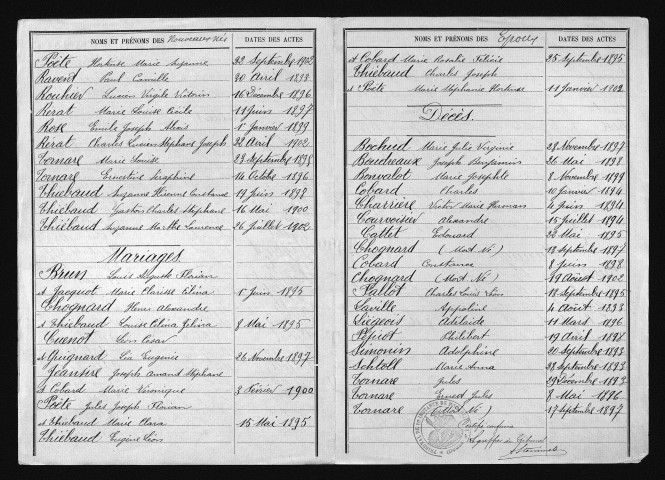 NOMS ET PRÉNOMS DES Nouveaux-nés DATES DES ACTES
Poète Hortense Marie Suzanne 22 Septembre 1902
Ravent Paul Camille 20 avril 1893
Rouhier Lucien Virgile Victorin 16 Décembre 1896
Rérat Marie Louise Cécile 11 Juin 1897
Rose Emile Joseph Alexis 1er Janvier 1899
Rérat Charles Lucien Stéphane Joseph 22 Avril 1902
Tornare Marie Louise 23 Septembre 1898
Tornare Ernestine Séraphine 14 Octobre 1896
Thiébaud Suzanne Constance 19 Juin 1898
Thiébaud Gaston Charles Stéphane 16 Mai 1900
Thiébaud Suzanne Marthe Laurence 26 Juillet 1902
Mariages.
Brun Louis Auguste Florian
et Jacquot Marie Clarisse Célina 1er Juin 1895
Chognard Henri Alexandre
et Thiébaud Louise Célina Zélina 8 Mai 1895
Cuenot Léon César
et Guignard Lia Eugénie 26 Novembre 1897
Jeanfire Joseph Amand Stéphane
et Cobard Marie Véronique 8 Février 1900
Poète Jules Joseph Florian
et Thiébaud Marie Clara 15 Mai 1895
Thiébaud Eugène Léon
NOMS ET PRÉNOMS DES Epoux DATES DES ACTES
et Cobard Marie Rosalie Félicie 25 Septembre 1895
Thiébaud Charles Joseph
et Poète Marie Stéphanie Hortense 11 Janvier 1902
Décès.
Bochud Marie Julie Virginie 23 Novembre 1897
Boudreaux Joseph Benjamin 26 Mai 1898
Bonvalot Marie Josephte 8 Novembre 1899
Cobard Charles 10 Janvier 1894
Charrière Victor Marie Germain 4 Juin 1894
Courvoisier Alexandre 15 Juillet 1894
Cattet Edouard 22 Mai 1895
Chognard (Mort Né) 13 Septembre 1897
Cobard Constance 8 Juin 1898
Chognard (Mort Né) 19 Août 1902
Fallot Charles Louis Léon 18 Septembre 1895
Laville Appoline 4 Août 1893
Liégeois Adélaïde 11 Mars 1896
Pépiot Philibert 19 Avril 1898
Simonin Adolphine 20 Septembre 1893
Schtoll Marie Anna 28 Septembre 1893
Tornare Jules 29 Décembre 1893
Tornare Ernest Jules 8 Mai 1896
Tornare (Mort Né) 17 Septembre 1897
Certifié conforme
Le greffier du Tribunal